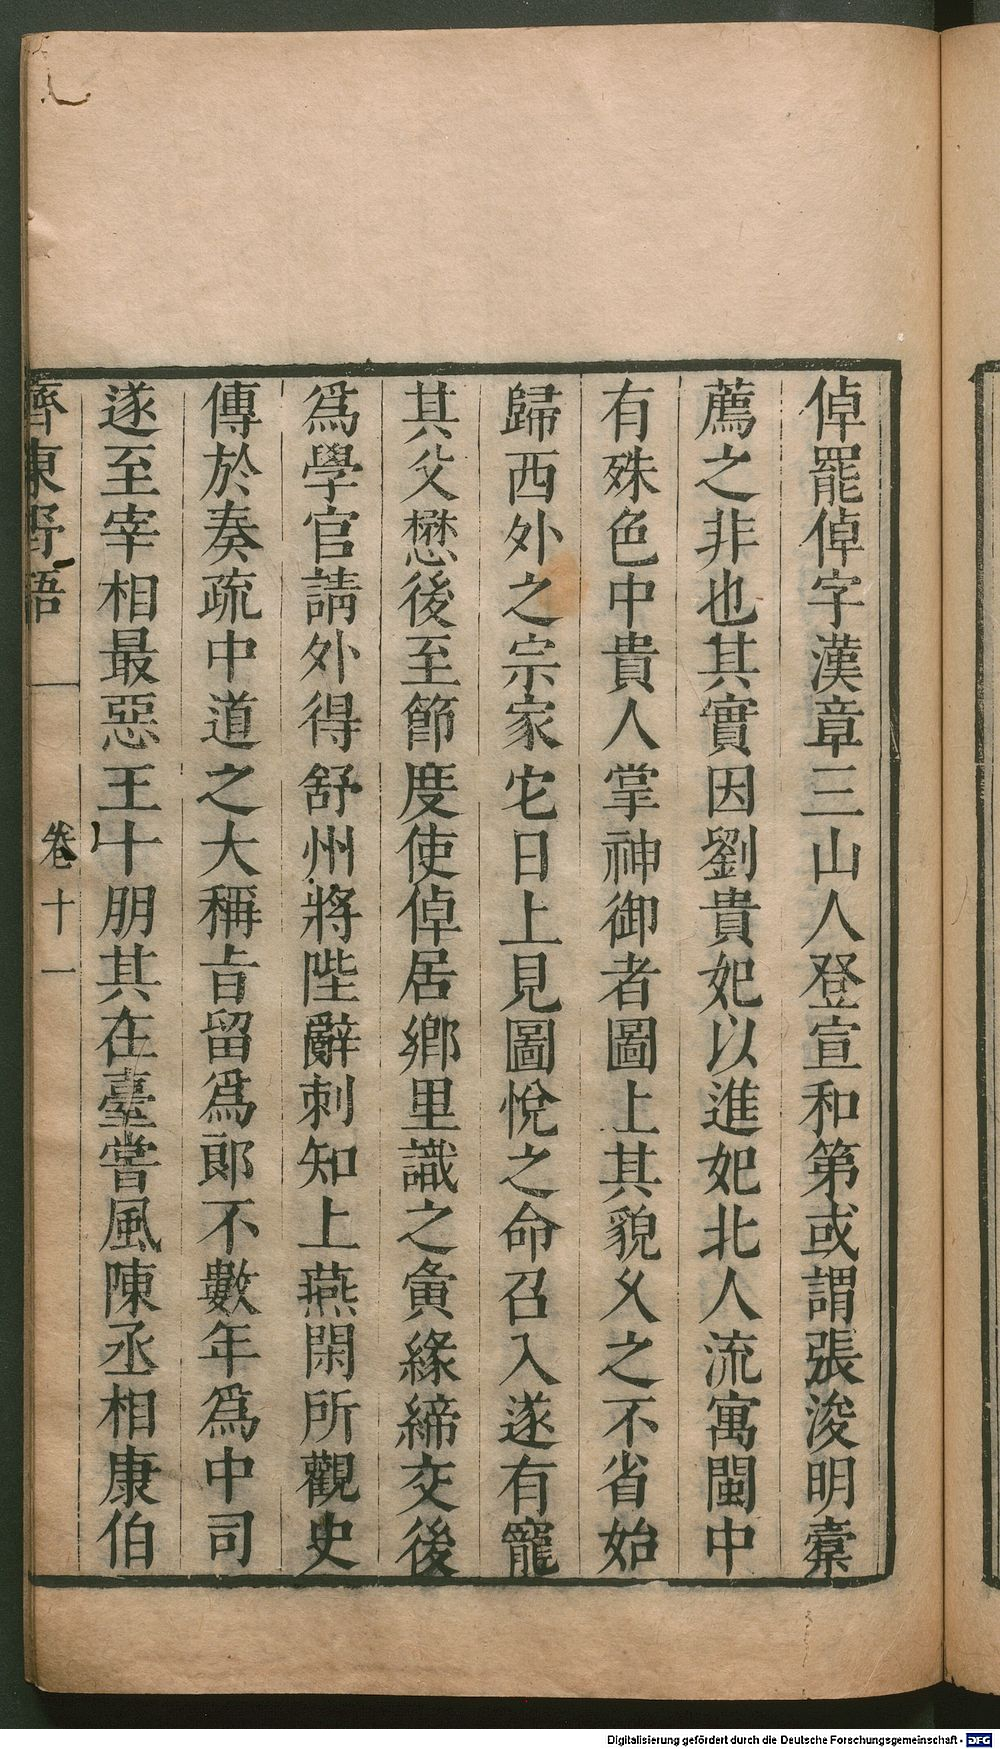 倬罷倬字漢章三山人登宣和第或謂張浚明橐
薦之非也其實因劉貴妃以進妃北人流寓閩中
有殊色中貴人掌神御者圖上其貌乆之不省始
歸西外之宗家它日上見圖悅之命召入遂有寵
其父懋後至節度使倬居鄉里識之夤緣締交後
爲學官請外得舒州將陛辭刺知上燕閑所觀史
傳於奏疏中道之大稱旨留爲郎不數年爲中司
遂至宰相最惡王十朋其在臺嘗風陳丞相康伯
齊東野語 卷十一
Digitalisierung gefördert durch die Deutsche Forschungsgemeinschaft - DFG